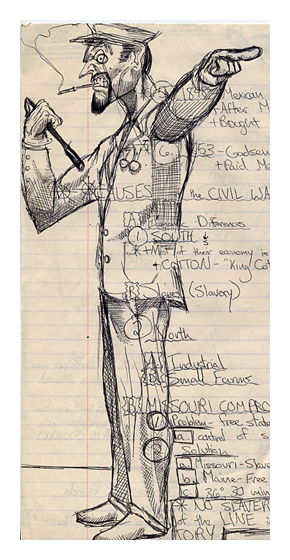 184 Mexican
+After M
+Bought
53-Gadsen
+Paid Me
CAUSES the CIVIL WA
Economic Differences
① SOUTH
*Most of their economy is
+COTTON- "King Cot
(Slavery)
② North
Industrial
Small Farms
MISSOURI COMPRO
Problem- free state
a. control of s
Solution
a. Missouri-Slave
b. Maine-Free
c. 36° 30 min
* NO SLAVER
of the LINE
TORY